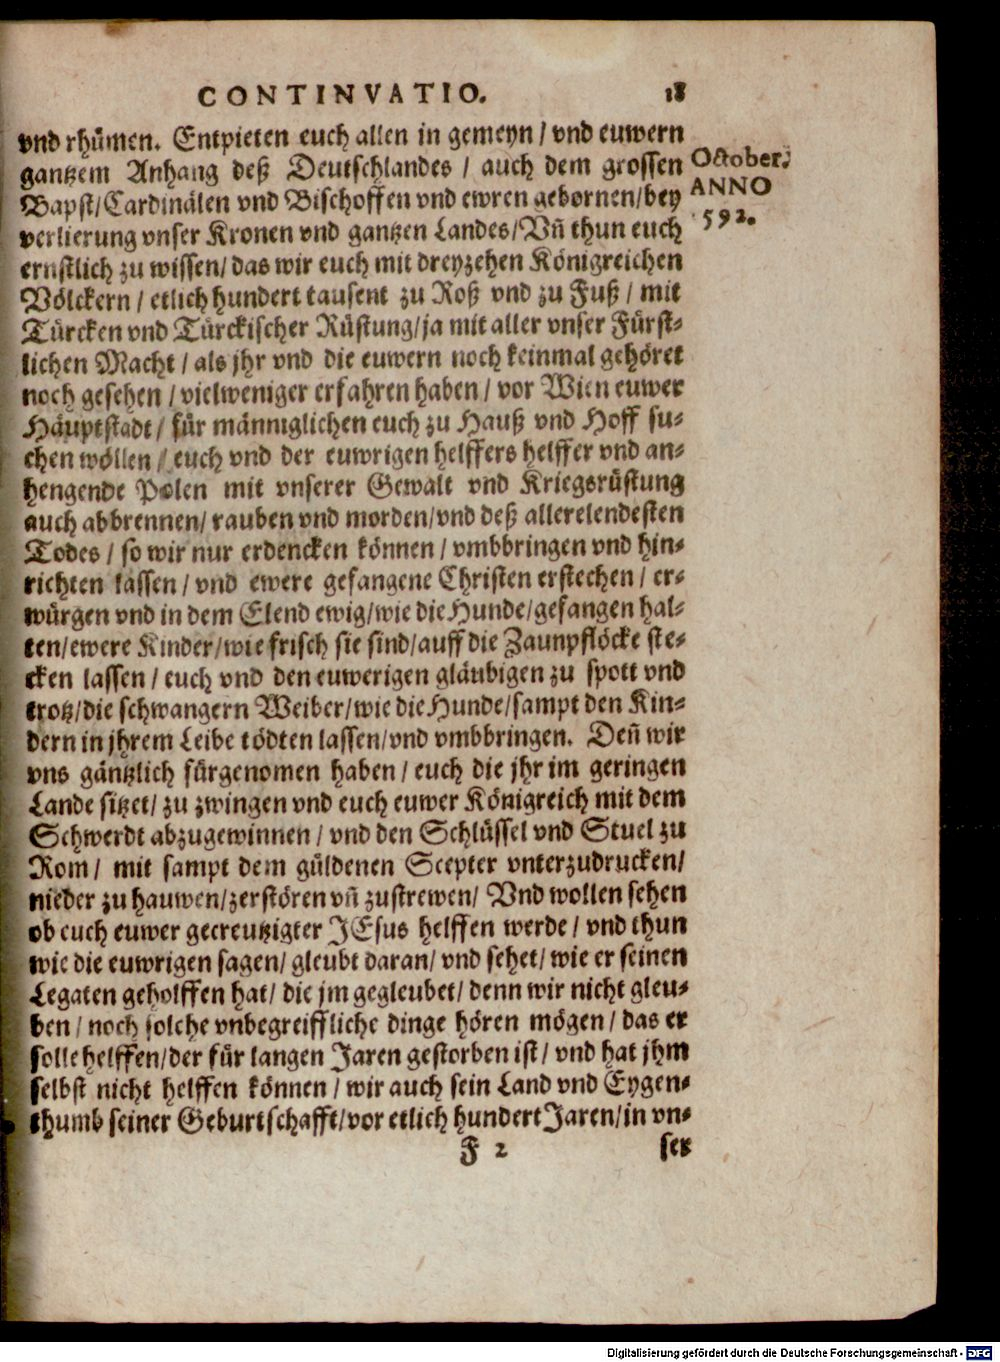 CONTINVATIO. 18
vnd rhümen. Entpieten euch allen in gemeyn / vnd euwern
gantzem Anhang deß Deutschlandes / auch dem grossen
Bapst/Cardinälen vnd Bischoffen vnd ewren gebornen/bey
verlierung vnser Kronen vnd gantzen Landes/Vñ thun euch
ernstlich zu wissen/das wir euch mit dreyzehen Königreichen
Völckern / etlich hundert tausent zu Roß vnd zu Fuß / mit
Türcken vnd Türckischer Rüstung/ja mit aller vnser Fürst-
lichen Macht / als jhr vnd die euwern noch keinmal gehöret
noch gesehen / vielweniger erfahren haben / vor Wien euwer
Häuptstadt / für männiglichen euch zu Hauß vnd Hoff su-
chen wöllen / euch vnd der euwrigen helffers helffer vnd an-
hengende Polen mit vnserer Gewalt vnd Kriegsrüstung
auch abbrennen/ rauben vnd morden/vnd deß allerelendesten
Todes / so wir nur erdencken können / vmbbringen vnd hin-
richten lassen / vnd ewere gefangene Christen erstechen / er-
würgen vnd in dem Elend ewig/wie die Hunde/gefangen hal-
ten/ewere Kinder/wie frisch sie sind/auff die Zaunpflöcke ste-
cken lassen / euch vnd den euwerigen gläubigen zu spott vnd
trotz/die schwangern Weiber/wie die Hunde/sampt den Kin-
dern in jhrem Leibe tödten lassen/vnd vmbbringen. Deñ wir
vns gäntzlich fürgenomen haben / euch die jhr im geringen
Lande sitzet/ zu zwingen vnd euch euwer Königreich mit dem
Schwerdt abzugewinnen / vnd den Schlüssel vnd Stuel zu
Rom / mit sampt dem güldenen Scepter vnterzudrucken/
nieder zu hauwen/zerstören vñ zustrewen/ Vnd wollen sehen
ob euch euwer gecreutzigter JEsus helffen werde / vnd thun
wie die euwrigen sagen/ gleubt daran/ vnd sehet/ wie er seinen
Legaten geholffen hat/ die jm gegleubet/ denn wir nicht gleu-
ben / noch solche vnbegreiffliche dinge hören mögen / das er
solle helffen/der für langen Jaren gestorben ist/ vnd hat jhm
selbst nicht helffen können / wir auch sein Land vnd Eygen-
thumb seiner Geburtschafft/vor etlich hundert Jaren/in vn-
F 2 ser
October.
ANNO
592.
Digitalisierung gefördert durch die Deutsche Forschungsgemeinschaft - DFG